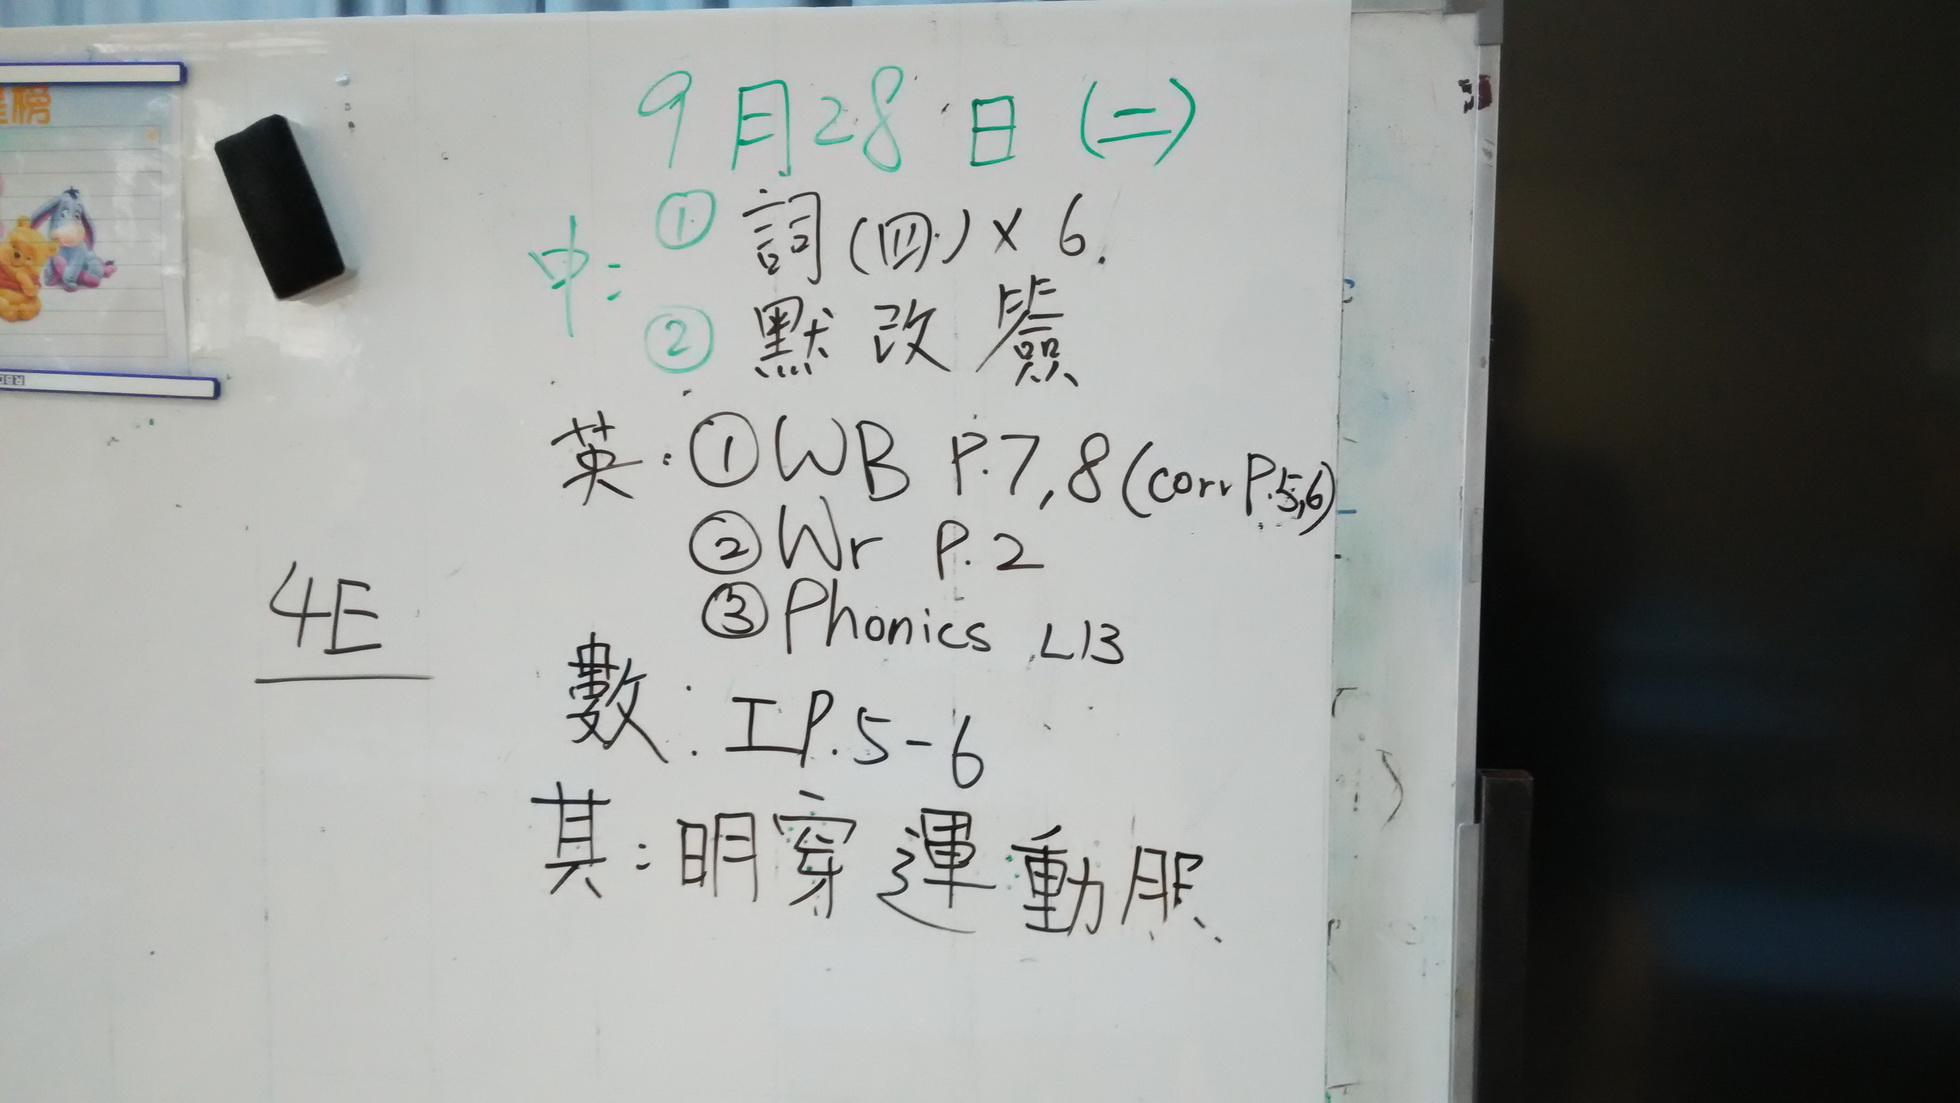 9月28日(二)
中: ① 詞(四)×6.
② 默改簽
英: ①WB P.7,8(corr P.5,6)
②Wr P.2
③Phonics L13
4E
數: 工P.5-6
其: 明穿運動服
榜